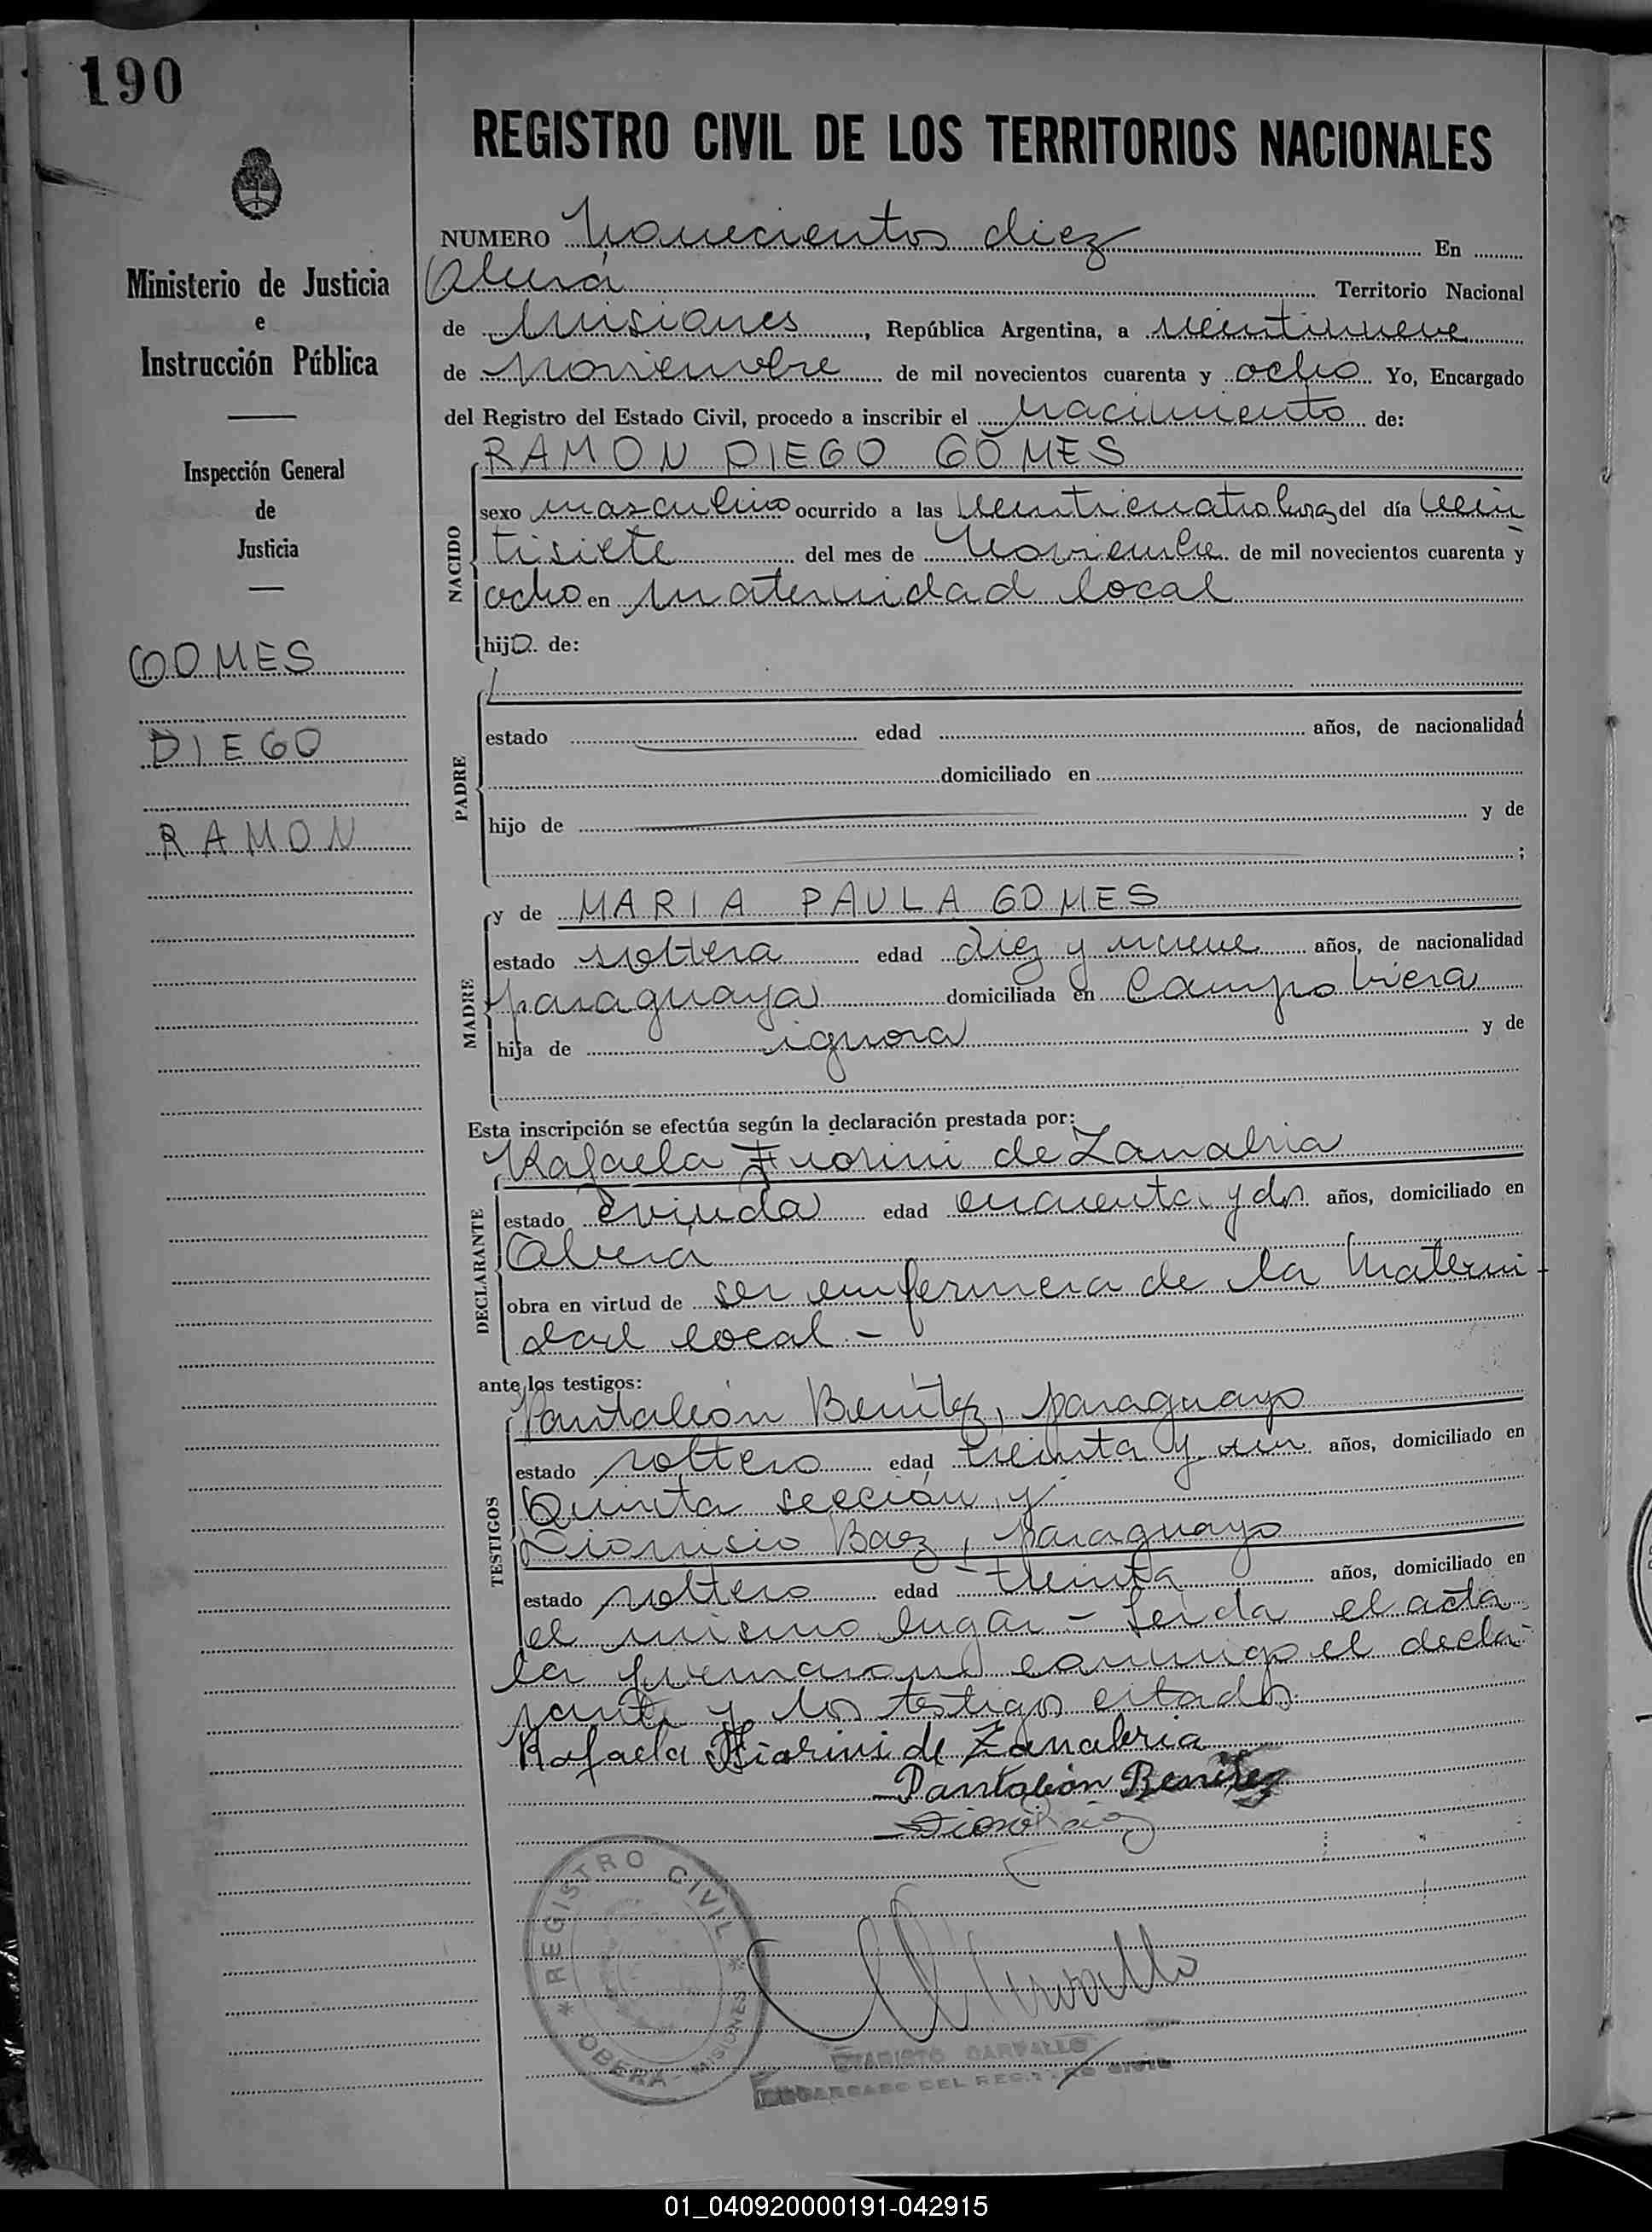 190
REGISTRO CIVIL DE LOS TERRITORIOS NACIONALES
Ministerio de Justicia
e
Instrucción Pública
Inspección General
de
Justicia
GOMES
DIEGO
RAMON
NUMERO Novecientos diez En
Oberá Territorio Nacional
de Misiones, República Argentina, a veintinueve
de Noviembre de mil novecientos cuarenta y ocho Yo, Encargado
del Registro del Estado Civil, procedo a inscribir el nacimiento de:
NACIDO
RAMON DIEGO GOMES
sexo masculino ocurrido a las veinticuatro horas del día vein
tisiete del mes de Noviembre de mil novecientos cuarenta y
ocho en Maternidad local
hijo de:
PADRE
estado edad años, de nacionalidad
domiciliado en
hijo de y de
;
MADRE
y de MARIA PAULA GOMES
estado soltera edad diez y nueve años, de nacionalidad
paraguaya domiciliada en Campo Viera
hija de ignora y de
Esta inscripción se efectúa según la declaración prestada por:
DECLARANTE
Rafaela Fiorini de Zanabria
estado viuda edad cincuenta y dos años, domiciliado en
Oberá
obra en virtud de ser enfermera de la Materni-
dad local -
ante los testigos:
TESTIGOS
Pantaleón Benitez, paraguayo
estado soltero edad treinta y un años, domiciliado en
Quinta sección, y
Dionisio Baez, paraguayo
estado soltero edad treinta años, domiciliado en
el mismo lugar - Leida el acta
la firmaron conmigo el decla-
rante y los testigos citados
Rafaela Fiorini de Zanabria
Pantaleón Benitez
* REGISTRO CIVIL *
OBERA - MISIONES
CARVALLO
ENCARGADO DEL REGISTRO CIVIL
01_040920000191-042915